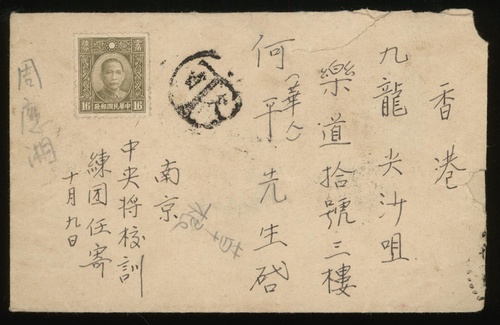 香港
九龍尖沙咀
樂道拾號三樓
何平(華人)先生啓
南京
中央將校訓
練團任寄
十月九日
中華民國郵政
16 16